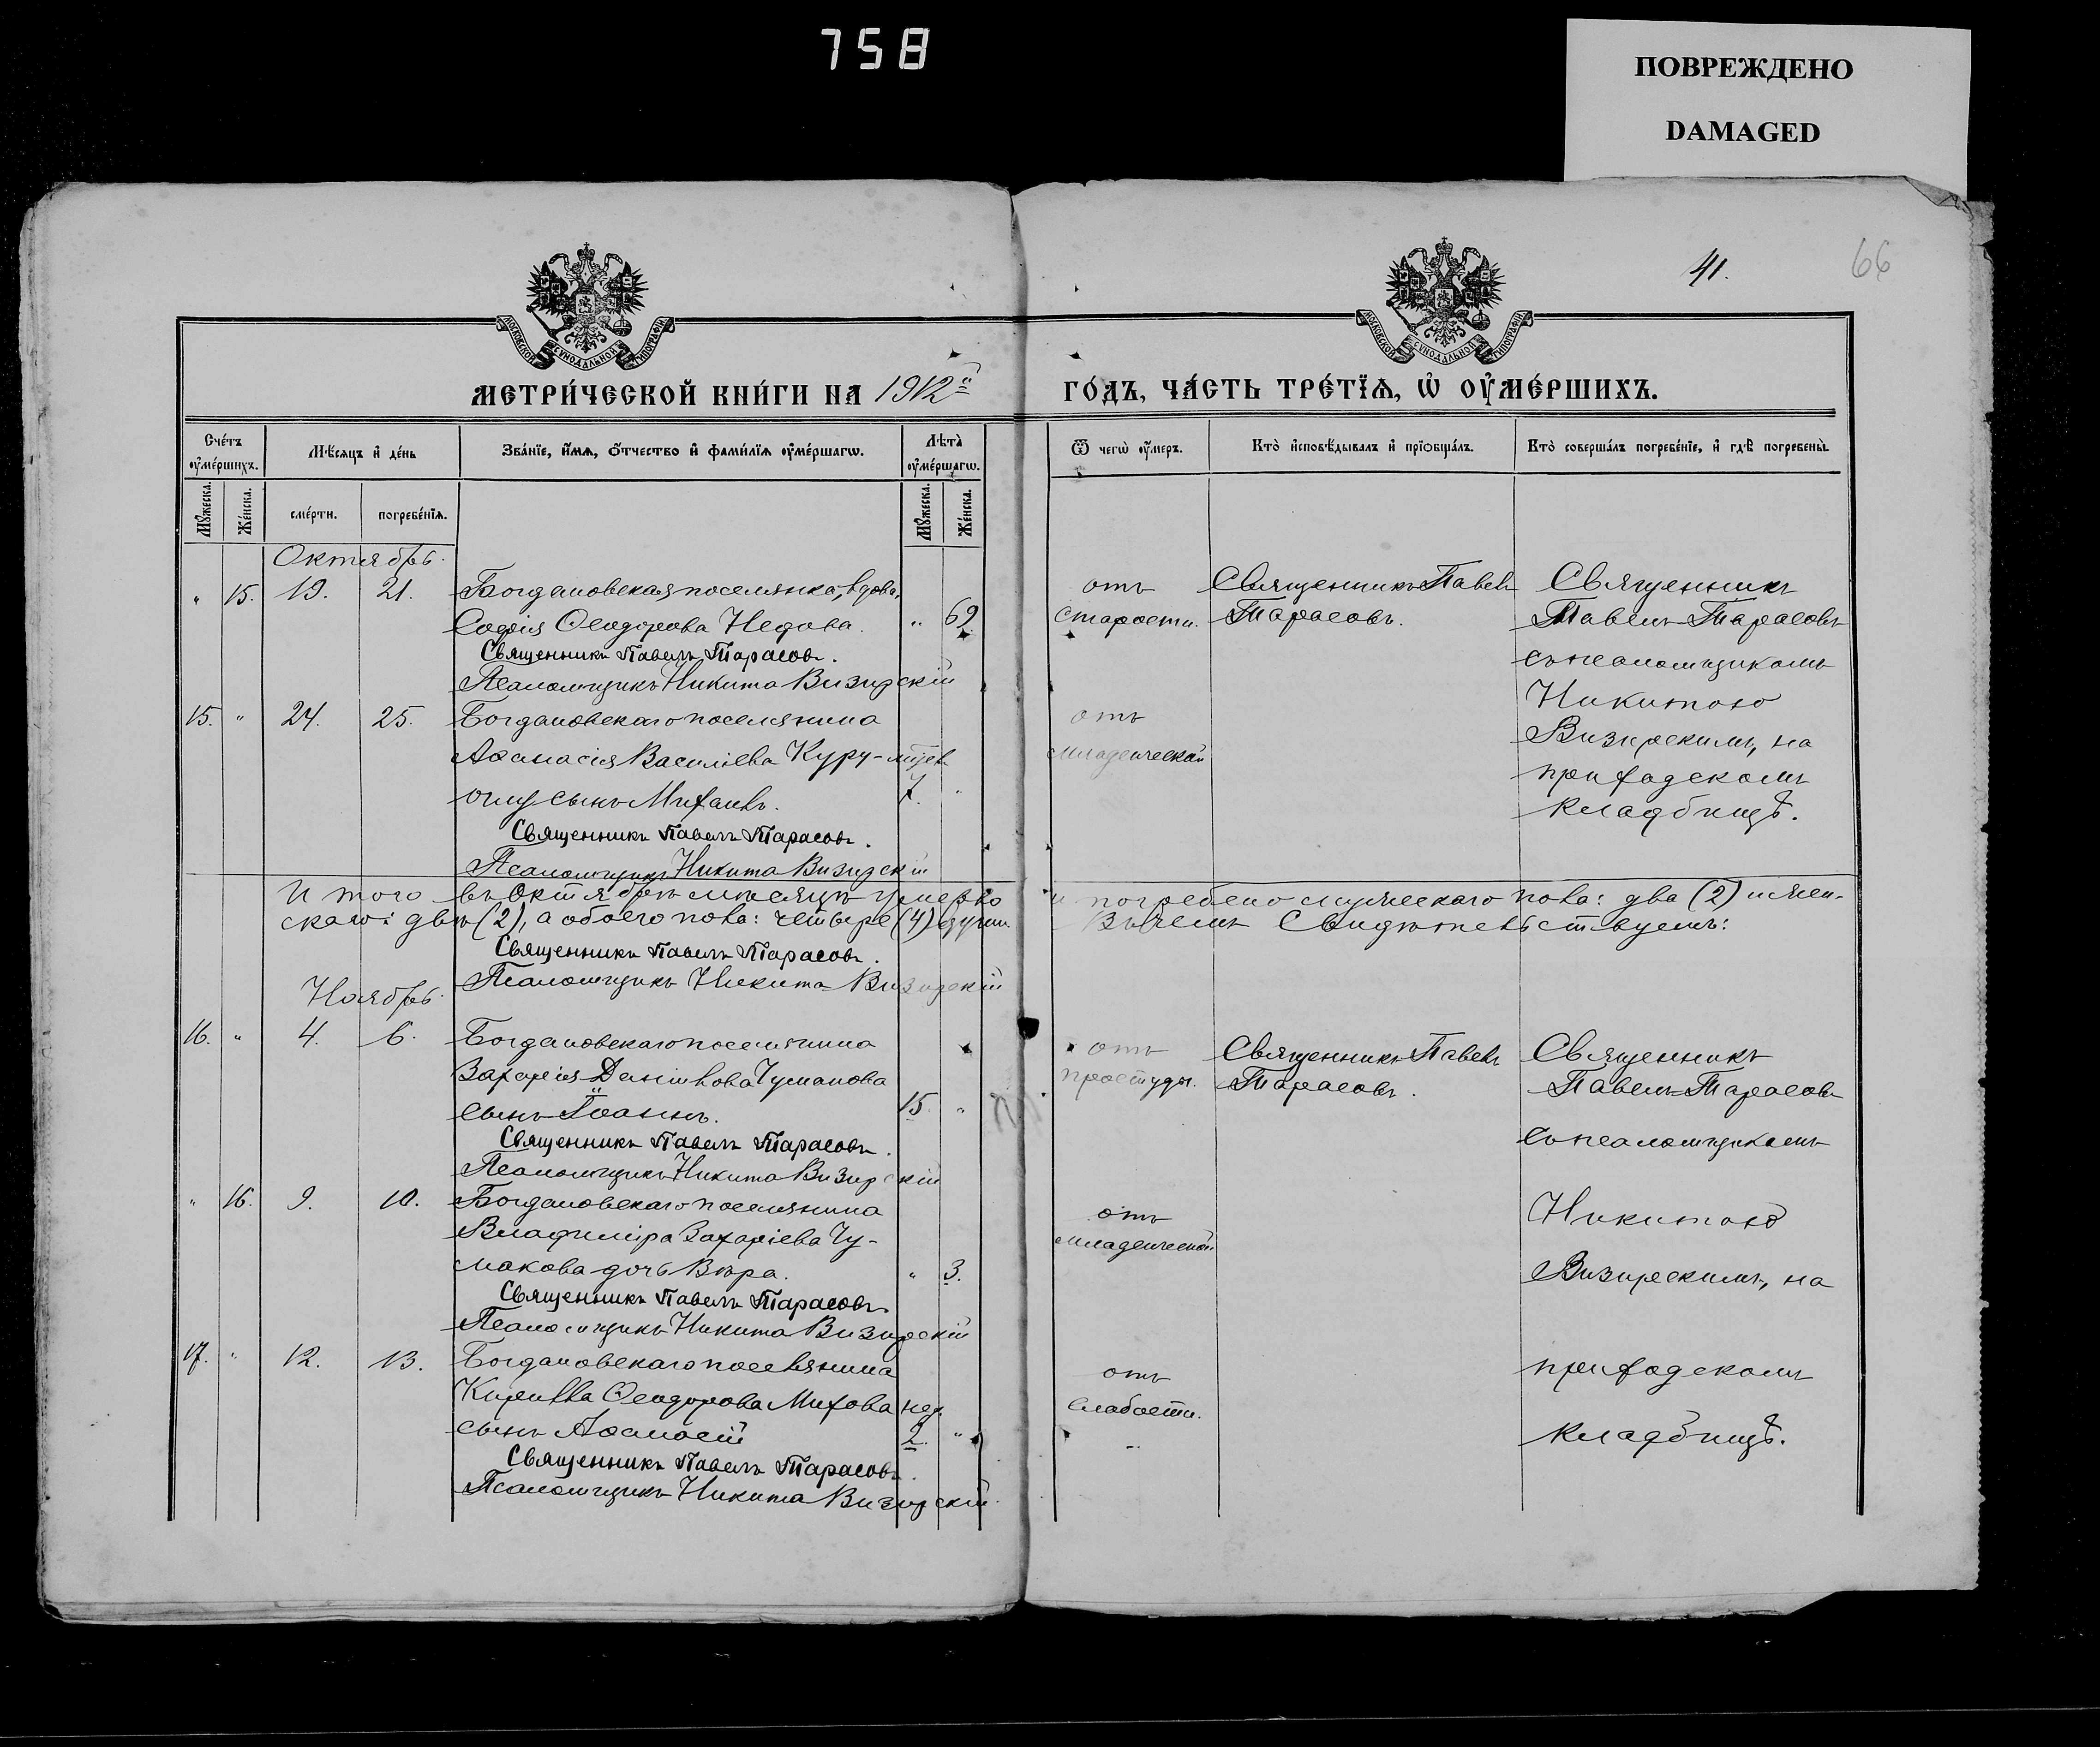 758
ПОВРЕЖДЕНО
DAMAGED
41.
66
МОСКОВСКОЙ СѴНОДАЛЬНОЙ ТИПОГРАФІИ
МОСКОВСКОЙ СѴНОДАЛЬНОЙ ТИПОГРАФІИ
МЕТРИ́ЧЕСКОЙ КНИ́ГИ НА 1912й
ГО́ДЪ, ЧА́СТЬ ТРЕ́ТЇѦ, Ѡ҆ ОУ҆МЕ́РШИХЪ.
Сче́тъ оу҆ме́ршихъ.
Мѣ́сѧцъ и҆ де́нь
Зва́нїе, и҆́мѧ, ѻ҆́тчество и҆ фамилїѧ оу҆ме́ршагѡ.
Лѣ́та̀ оу҆ме́ршагѡ.
Ѿ чегѡ̀ оу҆́меръ.
Кто̀ и҆сповѣ́дывалъ и҆ прїѻбща́лъ.
Кто̀ соверша́лъ погребе́нїе, и҆ гдѣ̀ погребены̀.
Мꙋ́жеска.
Же́нска.
сме́рти.
погребе́нїѧ.
Мꙋ́жеска.
Же́нска.
Октябрь.
" 15. 19. 21. Богдановская поселянка, вдова,
Софія Ѳеодорова Недова. " 69.
Священникъ Павелъ Тарасовъ.
Псаломщикъ Никита Визирскій
отъ
старости.
Священникъ Павелъ
Тарасовъ.
Священникъ
Павелъ Тарасовъ
съ псаломщикомъ
Никитою
Визирскимъ, на
приходскомъ
кладбищѣ.
15. " 24. 25. Богдановскаго поселянина
Аѳанасія Василіева Куру-
оглу сынъ Михаилъ. 7. "
Священникъ Павелъ Тарасовъ.
Псаломщикъ Никита Визирскій
отъ
младенческой
Итого въ Октябрѣ мѣсяцѣ умерло и погребено мужескаго пола: два (2) и жен-
скаго: двѣ (2), а обоего пола: четыре (4) души. Въ чемъ Свидѣтельствуемъ:
Священникъ Павелъ Тарасовъ.
Псаломщикъ Никита Визирскій
Ноябрь.
16. " 4. 6. Богдановскаго поселянина
Захарія Даніилова Чумакова
сынъ Іоаннъ. 15. "
Священникъ Павелъ Тарасовъ.
Псаломщикъ Никита Визирскій
отъ
простуды.
Священникъ Павелъ
Тарасовъ.
Священникъ
Павелъ Тарасовъ
съ псаломщикомъ
Никитою
Визирскимъ, на
приходскомъ
кладбищѣ.
" 16. 9. 10. Богдановскаго поселянина
Владиміра Захаріева Чу-
макова дочь Вѣра. " 3.
Священникъ Павелъ Тарасовъ.
Псаломщикъ Никита Визирскій
отъ
младенческой
17. " 12. 13. Богдановскаго поселянина
Кирилла Ѳеодорова Михова нед.
сынъ Аѳанасій 2. "
Священникъ Павелъ Тарасовъ.
Псаломщикъ Никита Визирскій.
отъ
слабости.